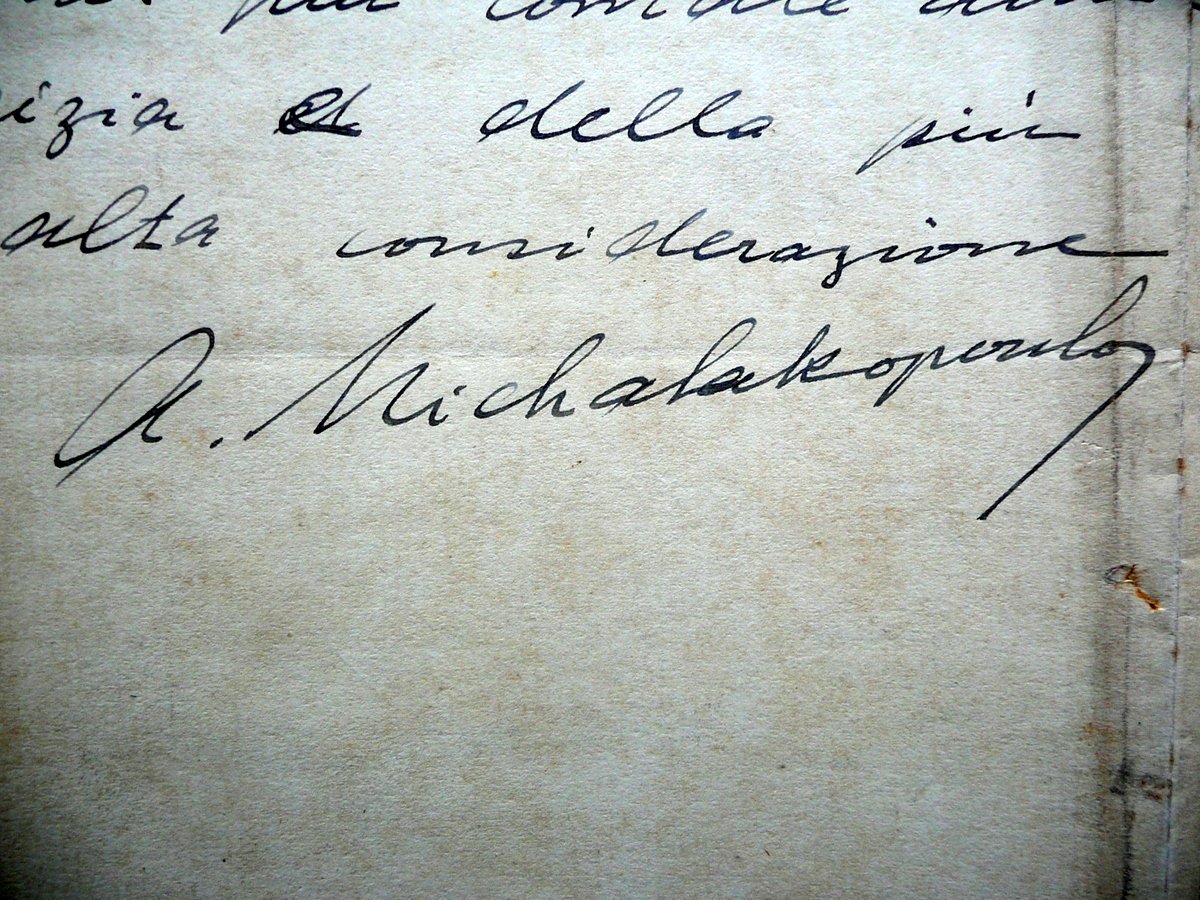 più cordiale
izia e della più
alta considerazione
A. Michalakopoulos